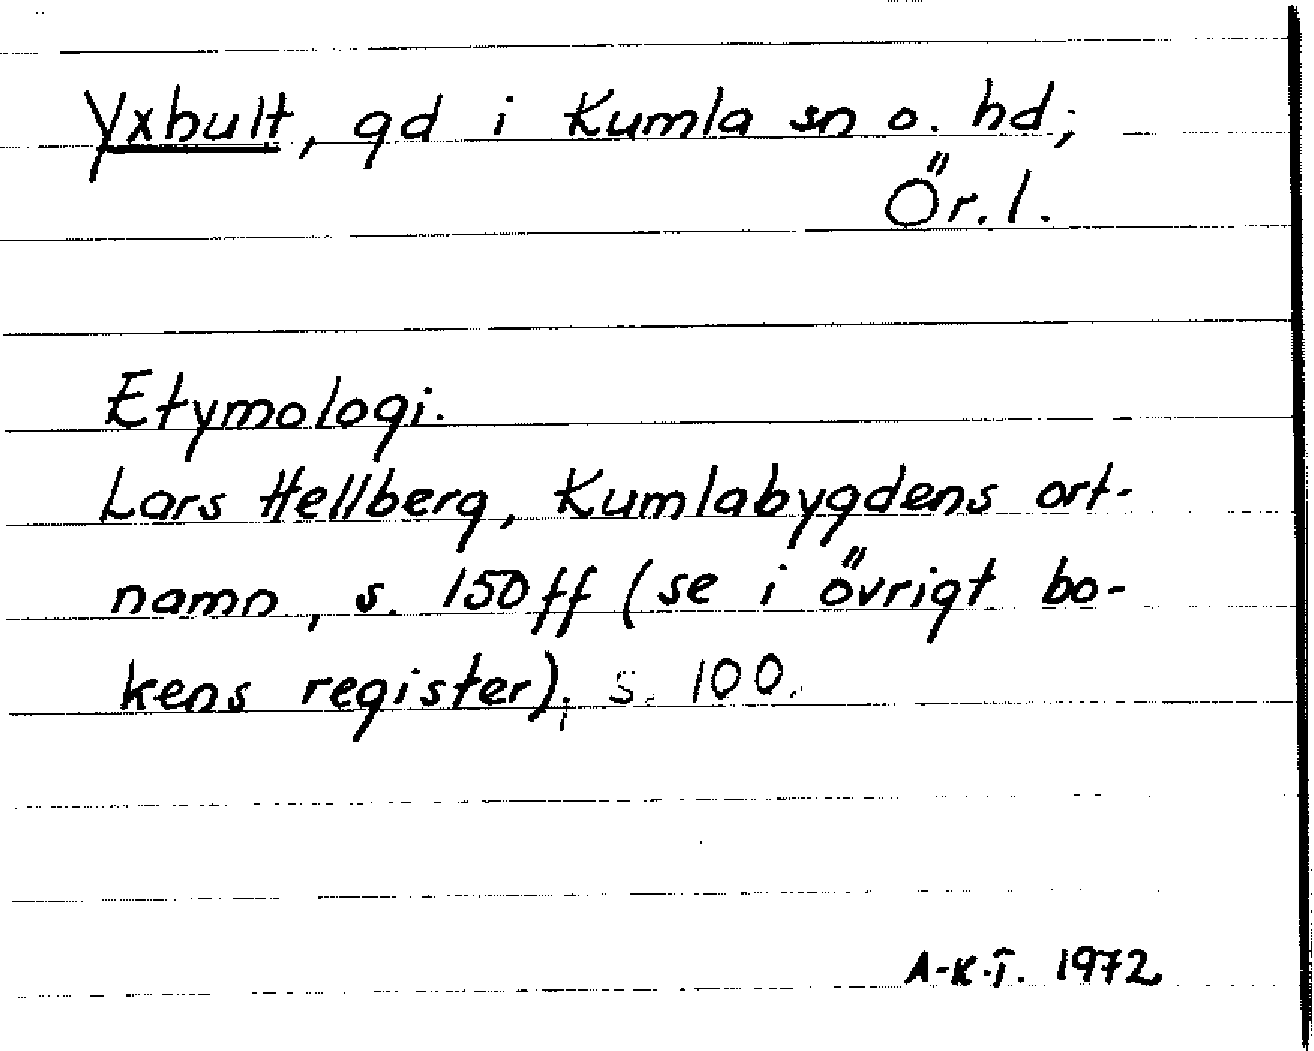 Yxhult, gd i Kumla sn o. hd;
Ör. l.
Etymologi.
Lars Hellberg, Kumlabygdens ort-
namn, s. 150 ff (se i övrigt bo-
kens register); s. 100.
A-K.T. 1972